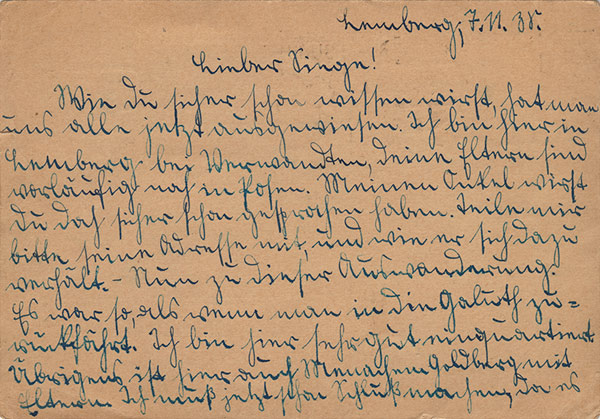 Lemberg, 7.11.38.
Lieber Singe!
Wie du sicher schon wissen wirst, hat man
uns alle jetzt ausgewiesen. Ich bin hier in
Lemberg bei Verwandten, deine Eltern sind
vorläufig noch in Posen. Meinen Onkel wirst
du doch sicher schon gesprochen haben. Teile mir
bitte seine Adresse mit, und wie er sich dazu
verhält. – Nun zu dieser Auswanderung.
Es war so, als wenn man in die Galuth zu=
rückfährt. Ich bin hier sehr gut einquartiert.
Übrigens, ist hier auch Menachem Goldberg mit
Eltern. Ich muß jetzt schon Schluß machen, da es